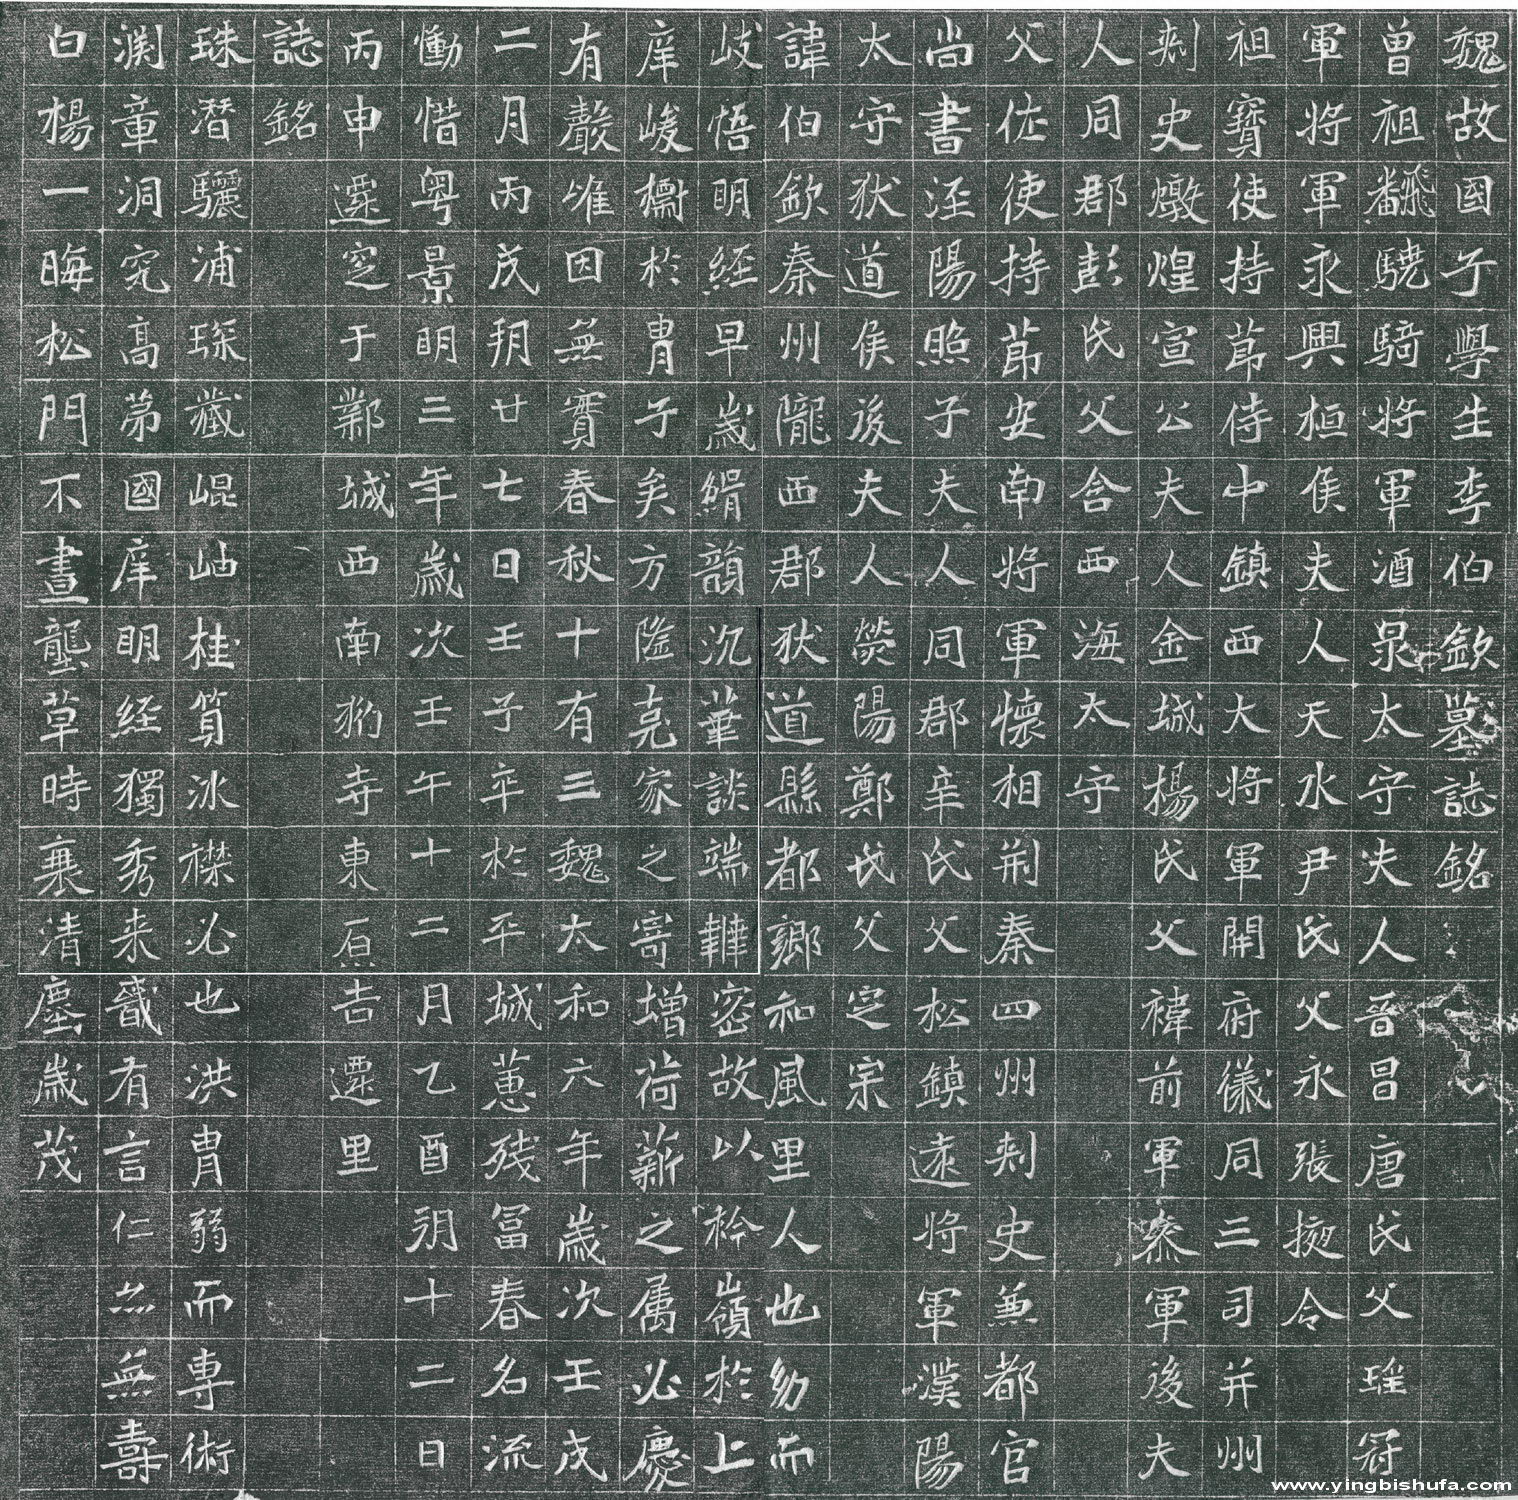 魏故國子學生李伯欽墓誌銘
曾祖翻驍騎將軍酒泉太守夫人晉昌唐氏父瑶冠
軍將軍永興桓侯夫人天水尹氏父永張掖令
祖寶使持節侍中鎮西大將軍開府儀同三司并州
刺史燉煌宣公夫人金城楊氏父禕前軍叅軍後夫
人同郡彭氏父含西海太守
父佐使持節安南將軍懷相荊秦四州刺史兼都官
尚書涇陽照子夫人同郡辛氏父松鎮遠將軍漢陽
太守狄道侯後夫人滎陽鄭氏父定宗
諱伯欽秦州隴西郡狄道縣都鄉和風里人也幼而
岐悟明經早歲緝韻沉華談端韡密故以矜嶺於上
庠峻櫤於胄子矣方隆克家之寄增荷薪之属必慶
有嚴嶉因無實春秋十有三魏太和六年歲次壬戌
二月丙戌朔廿七日壬子卒於平城蕙殘冨春名流
慟惜粤景明三年歲次壬午十二月乙酉朔十二日
丙申遷窆于鄴城西南豹寺東原吉遷里
誌銘
珠潛驪浦琛藏崐岫桂筫冰襟必也洪胄弱而專術
渕童洞究髙第國庠明經獨秀来哉有言仁亦無壽
白楊一晦松門不晝壟草時衰清塵歲茂
www.yingbishufa.com